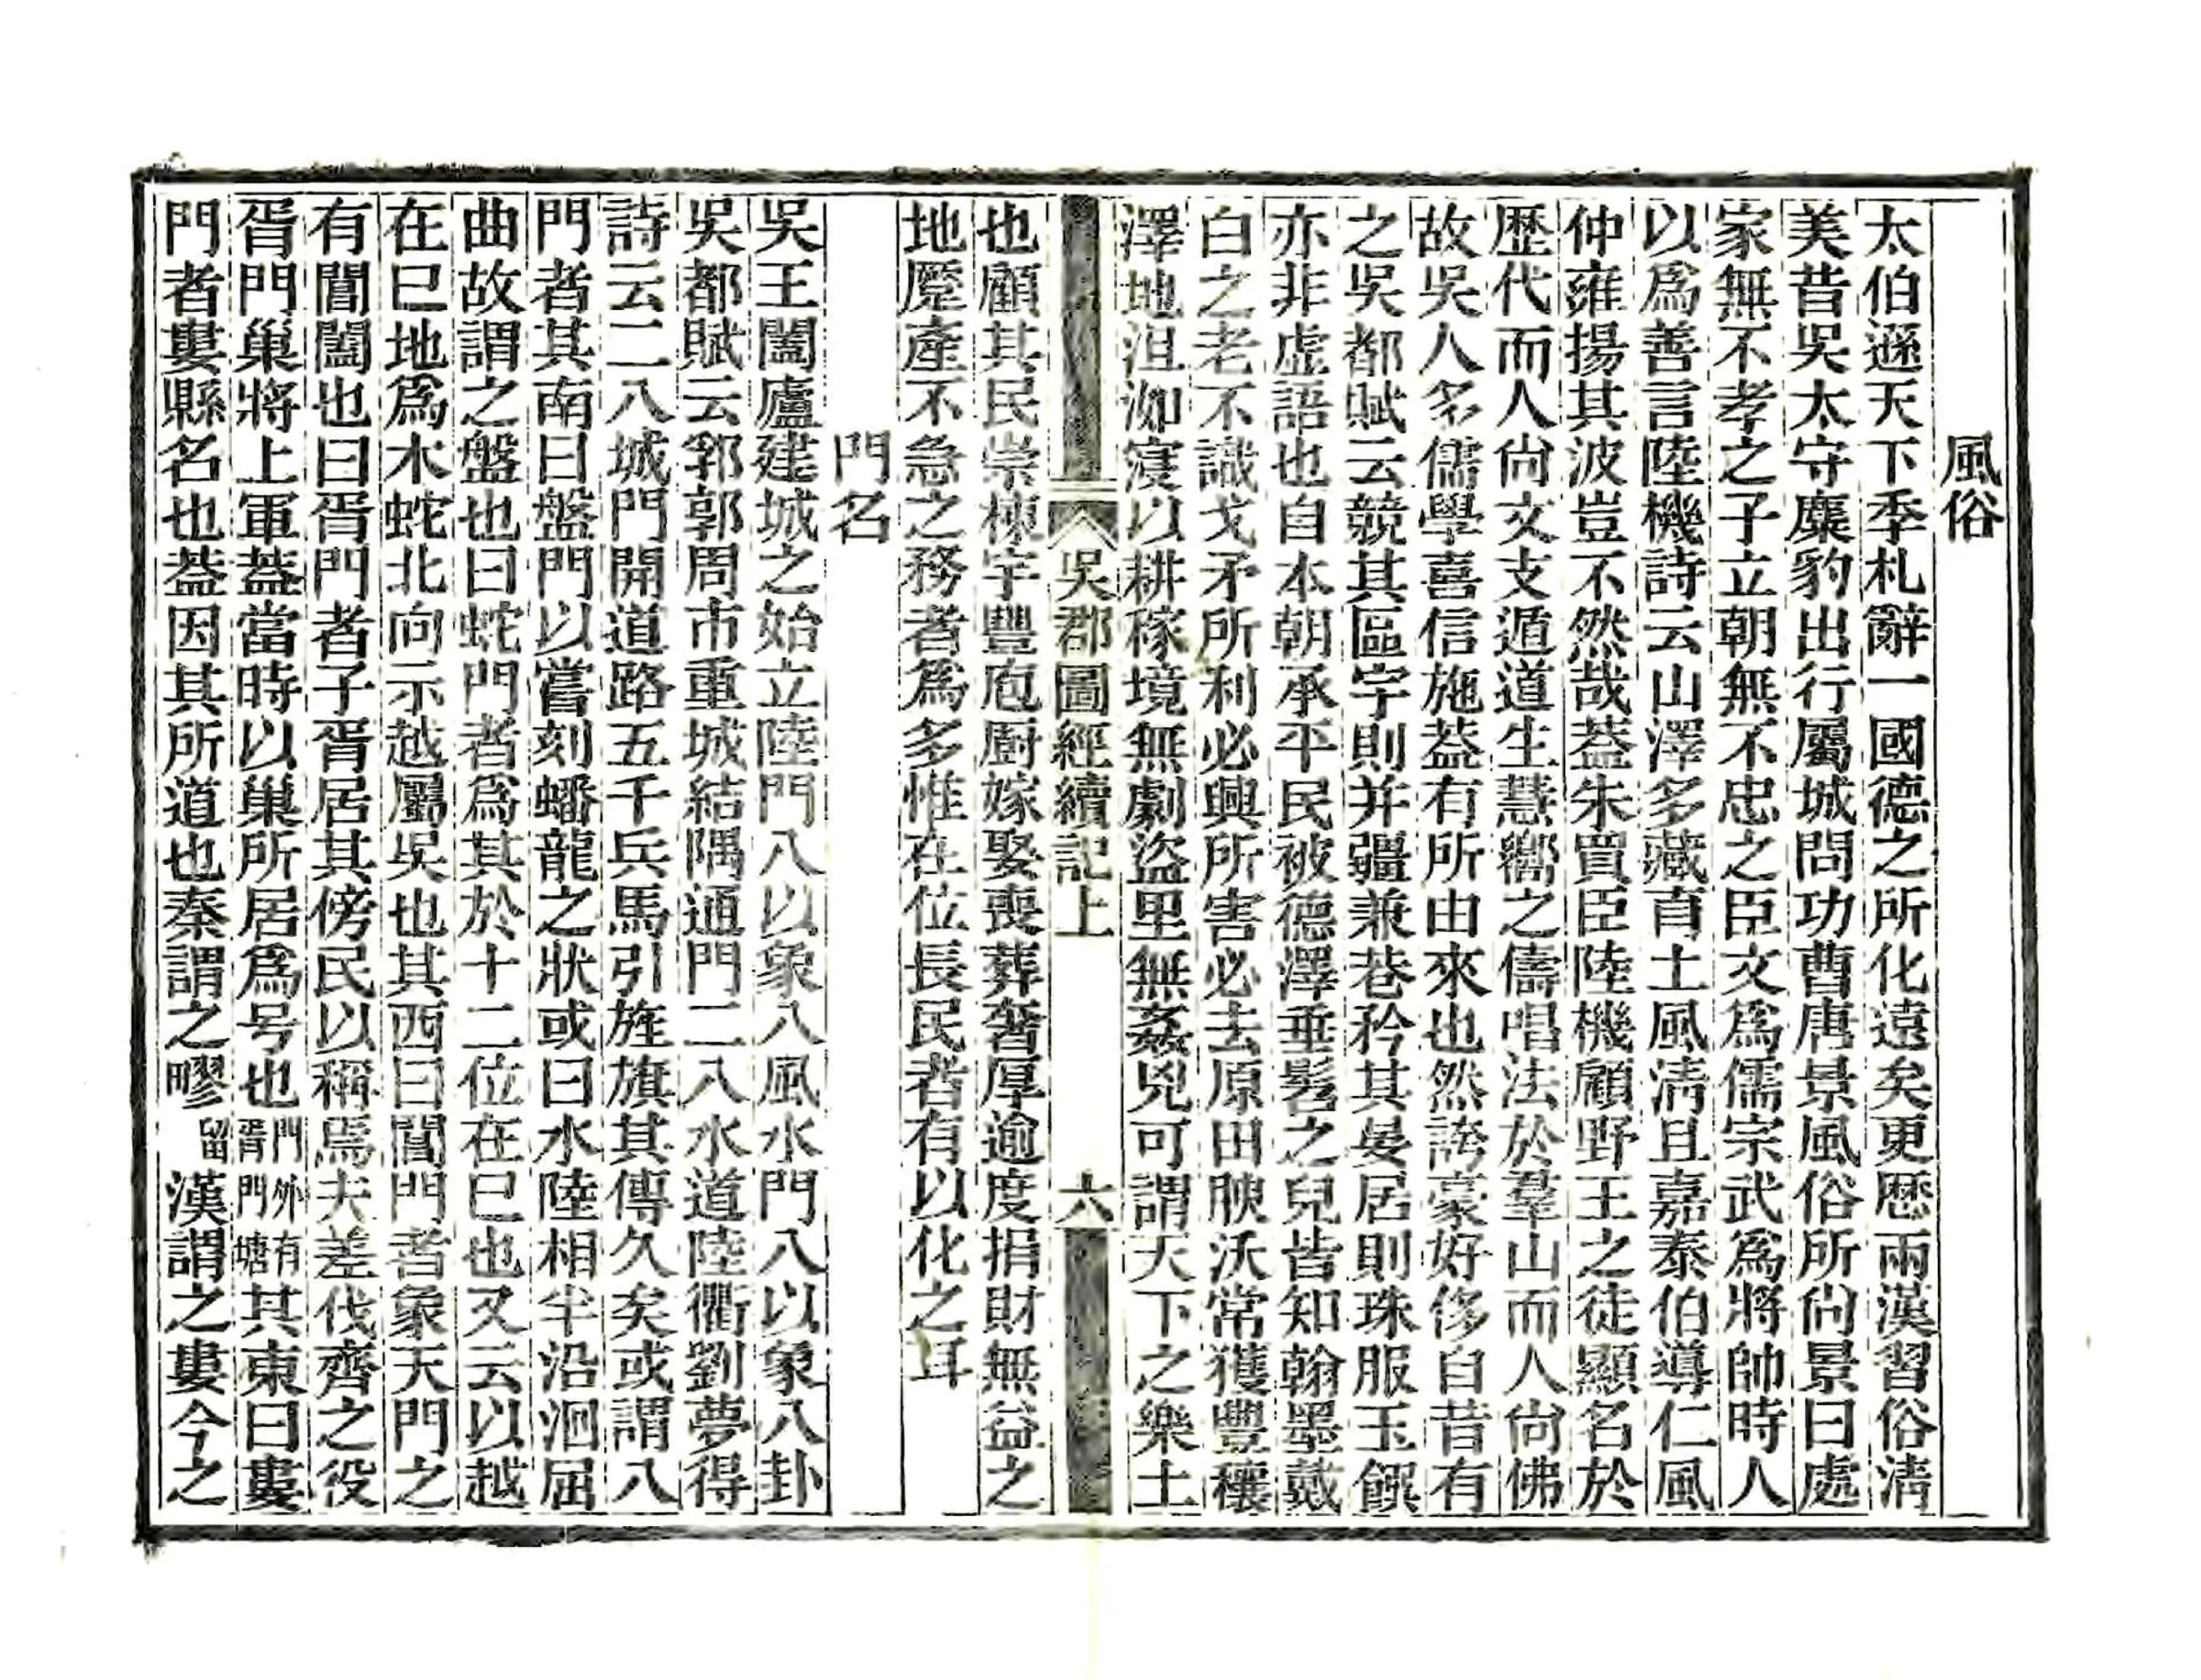 風俗
太伯遜天下季札辭一國德之所化遠矣更歷兩漢習俗清
美昔吳太守麋豹出行屬城問功曹唐景風俗所尙景曰處
家無不孝之子立朝無不忠之臣文爲儒宗武爲將帥時人
以爲善言陸機詩云山澤多藏育土風清且嘉泰伯導仁風
仲雍揚其波豈不然哉葢朱買臣陸機顧野王之徒顯名於
歷代而人尙文支遁道生慧嚮之儔唱法於羣山而人尙佛
故吳人多儒學喜信施葢有所由來也然誇豪好侈自昔有
之吳都賦云競其區宇則并疆兼巷矜其宴居則珠服玉饌
亦非虛語也自本朝承平民被德澤垂髫之兒皆知翰墨戴
白之老不識戈矛所利必興所害必去原田腴沃常獲豐穰
澤地沮洳寖以耕稼境無劇盜里無姦兇可謂天下之樂土
吳郡圖經續記上 六
也顧其民崇棟宇豐庖厨嫁娶喪葬奢厚逾度捐財無益之
地蹷產不急之務者爲多惟在位長民者有以化之耳
門名
吳王闔廬建城之始立陸門八以象八風水門八以象八卦
吳都賦云郛郭周市重城結隅通門二八水道陸衢劉夢得
詩云二八城門開道路五千兵馬引旌旗其傳久矣或謂八
門者其南曰盤門以嘗刻蟠龍之狀或曰水陸相半沿洄屈
曲故謂之盤也曰蛇門者爲其於十二位在巳也又云以越
在巳地爲木蛇北向示越屬吳也其西曰閶門者象天門之
有閶闔也曰胥門者子胥居其傍民以稱焉夫差伐齊之役
胥門巢將上軍葢當時以巢所居爲号也門外有胥門塘其東曰婁
門者婁縣名也葢因其所道也秦謂之疁留漢謂之婁今之